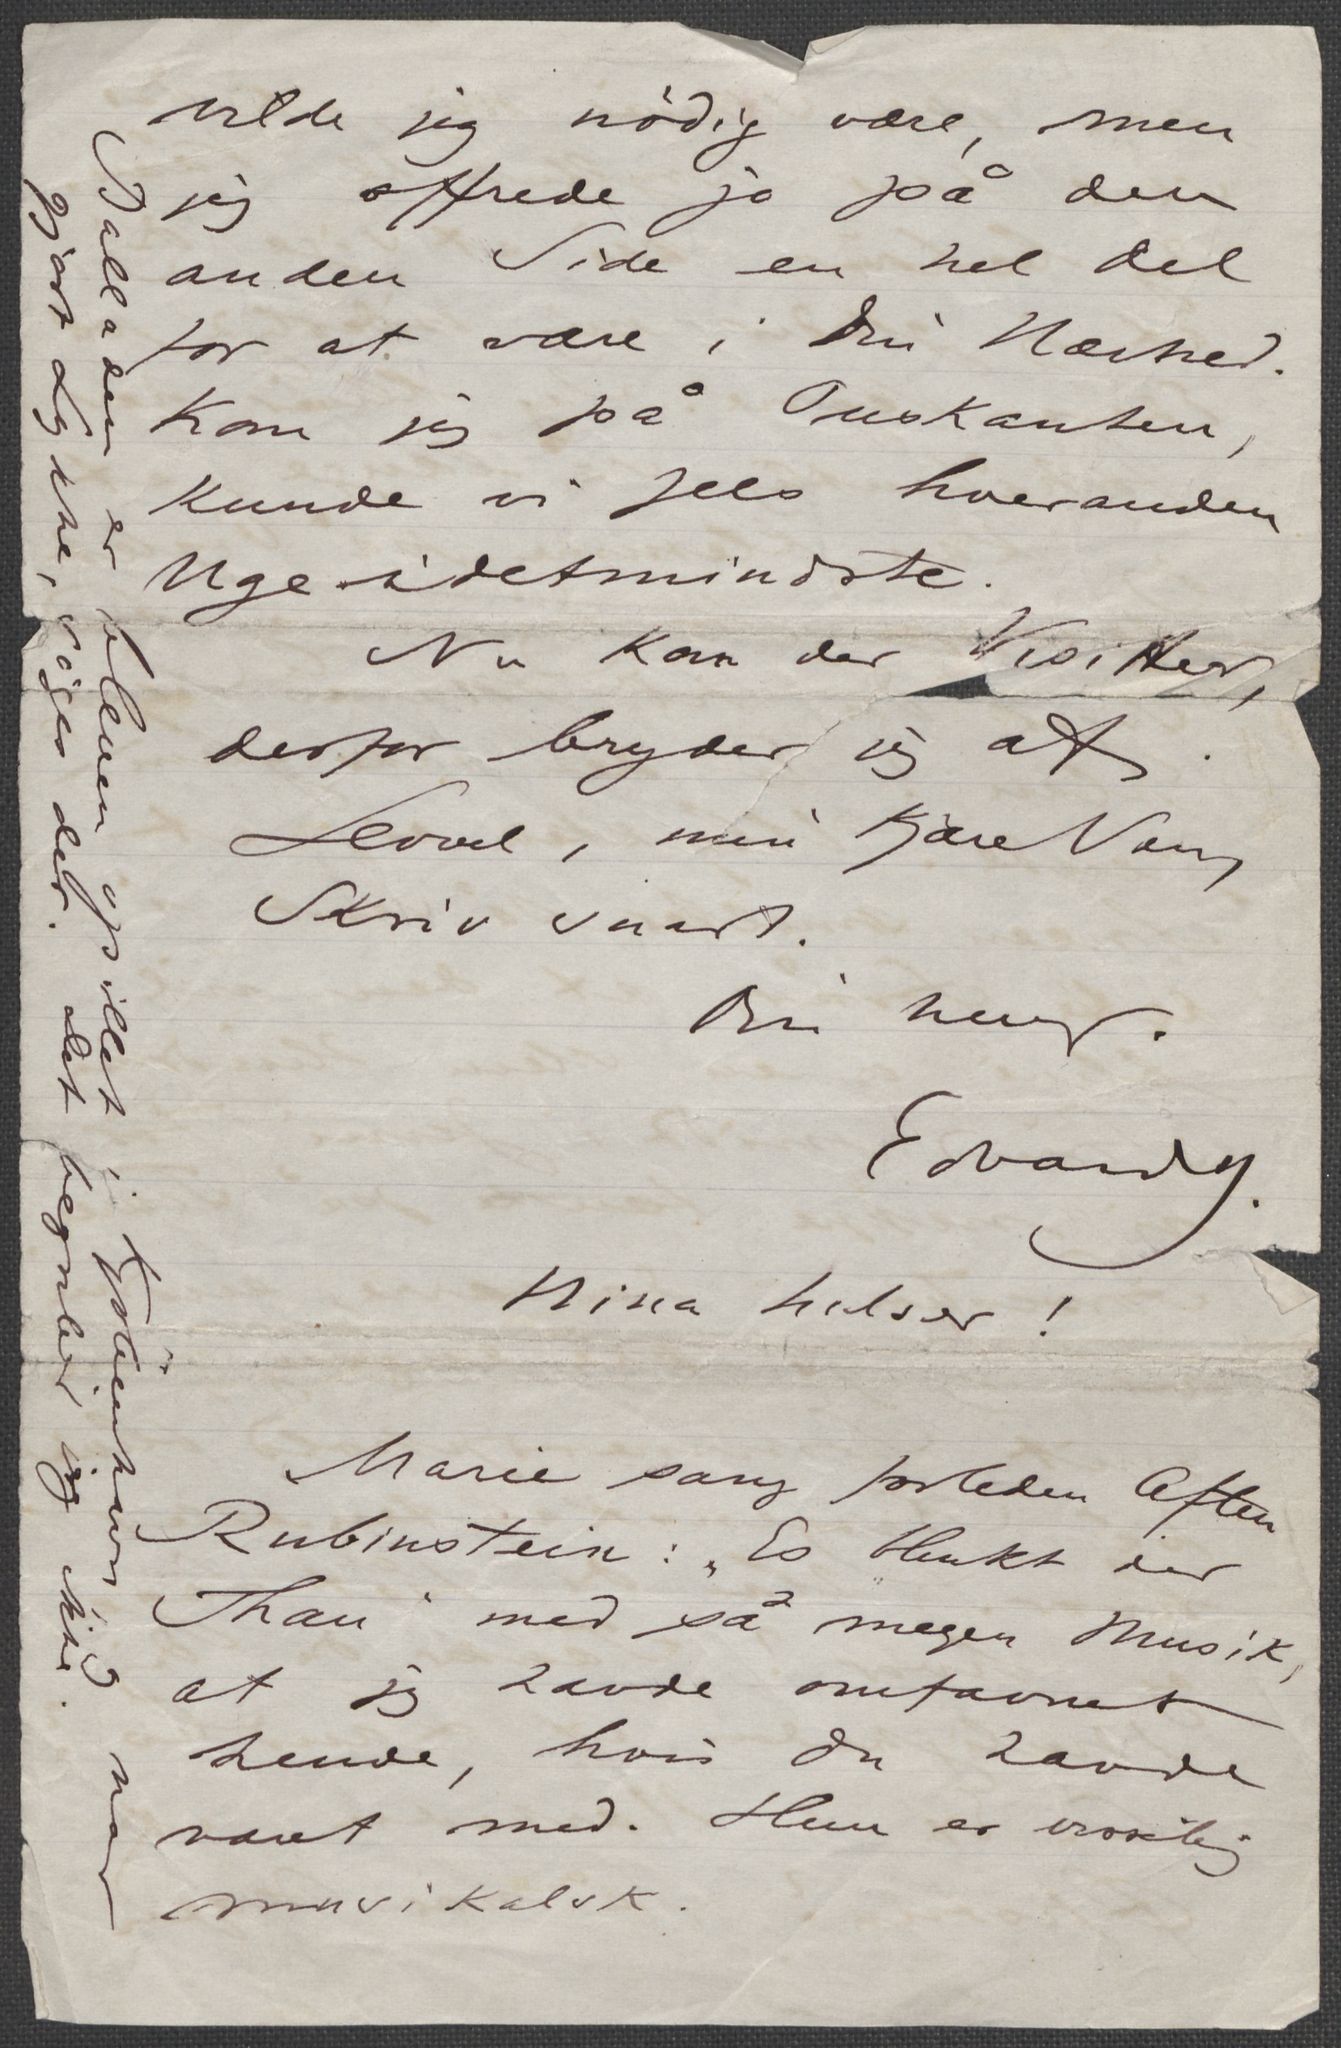 vilde jeg nödig være, men
jeg offrede jo på den
anden Side en hel del
for at være i Din Nærhed.
Kom jeg på Tuskanten,
kunde vi sees hveranden
Uge idetmindste.
Nu kom der Visitter,
derfor bryder jeg af.
Levvel, min kjære Ven,
Skriv snart.
Din heng.
Edvard G.
Nina hilser!
Marie sang forleden Aften
Rubinstein: „Es blinkt der
Thau" med så megen Musik,
at jeg havde omfavnet
hende, hvis Du havde
været med. Hun er virkelig
musikalsk.
Balladen er bleven spillet i Kjöbenhavn, har
gjort Lykke, siges der. Det begriber jeg ikke.